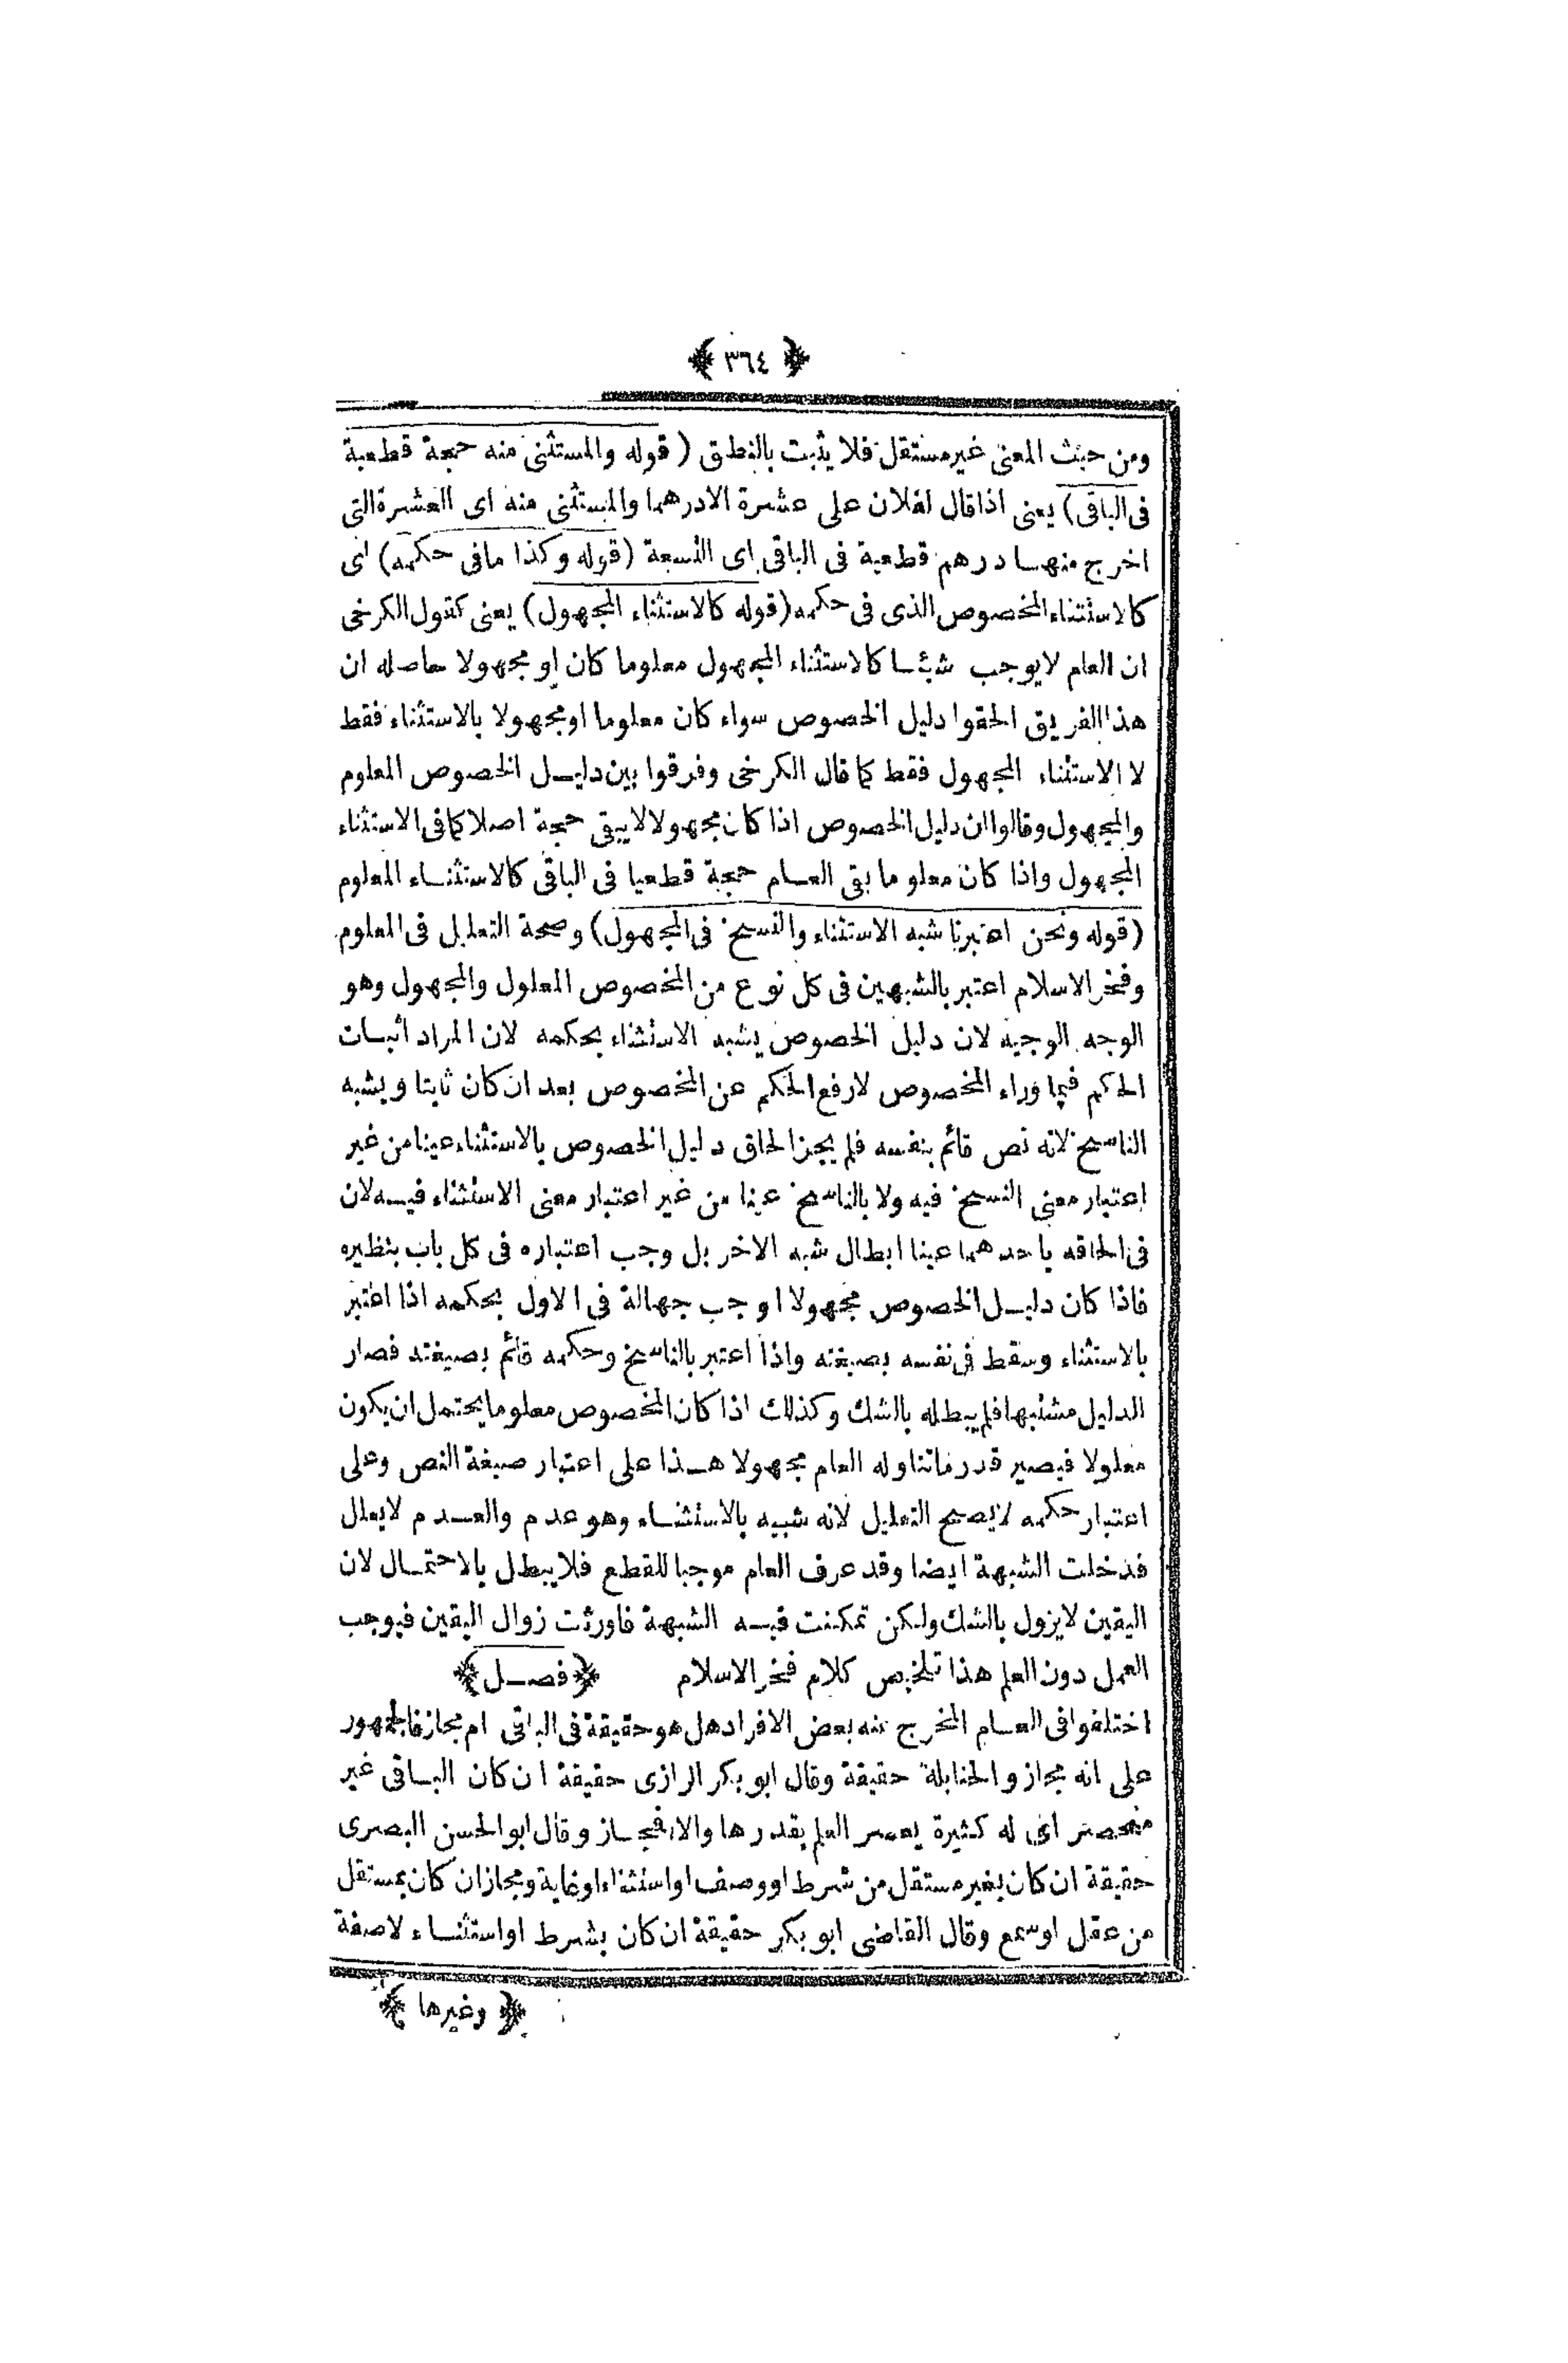 ﴿ ٣٦٤ ﴾
ومن حيث المعنى غير مستقل فلا يثبت بالنطق ( قوله والمستثنى منه حجة قطعية
فى الباقى ) يعنى اذا قال لفلان على عشرة الا درهما والمستثنى منه اى العشرة التى
اخرج منها درهم قطعية فى الباقى اى التسعة ( قوله وكذا ما فى حكمه ) اى
كالاستثناء المخصوص الذى فى حكمه ( قوله كالاستثناء المجهول ) يعنى كقول الكرخى
ان العام لا يوجب شيئا كالاستثناء المجهول معلوما كان او مجهولا حاصله ان
هذا الفريق الحقوا دليل الخصوص سواء كان معلوما او مجهولا بالاستثناء فقط
لا الاستثناء المجهول فقط كما قال الكرخى وفرقوا بين دليل الخصوص المعلوم
والمجهول وقالوا ان دليل الخصوص اذا كان مجهولا لا يبقى حجة اصلا كما فى الاستثناء
المجهول واذا كان معلوما بقى العام حجة قطعيا فى الباقى كالاستثناء المعلوم
( قوله ونحن اعتبرنا شبه الاستثناء والنسخ فى المجهول ) وصحة التعليل فى المعلوم
وفخر الاسلام اعتبر بالشبهين فى كل نوع من المخصوص المعلول والمجهول وهو
الوجه الوجيه لان دليل الخصوص يشبه الاستثناء بحكمه لان المراد اثبات
الحكم فيما وراء المخصوص لا رفع الحكم عن المخصوص بعد ان كان ثابتا ويشبه
الناسخ لانه نص قائم بنفسه فلم يجز الحاق دليل الخصوص بالاستثناء عينا من غير
اعتبار معنى النسخ فيه ولا بالناسخ عينا من غير اعتبار معنى الاستثناء فيه لان
فى الحاقه باحدهما عينا ابطال شبه الاخر بل وجب اعتباره فى كل باب بنظيره
فاذا كان دليل الخصوص مجهولا اوجب جهالة فى الاول بحكمه اذا اعتبر
بالاستثناء وسقط فى نفسه بصيغته واذا اعتبر بالناسخ وحكمه قائم بصيغته فصار
الدليل مشتبها فلم يبطله بالشك وكذلك اذا كان المخصوص معلوما يحتمل ان يكون
معلولا فيصير قدر ما تناوله العام مجهولا هذا على اعتبار صيغة النص وعلى
اعتبار حكمه لا يصح التعليل لانه شبيه بالاستثناء وهو عدم والعدم لا يعلل
فدخلت الشبهة ايضا وقد عرف العام موجبا للقطع فلا يبطل بالاحتمال لان
اليقين لا يزول بالشك ولكن تمكنت فيه الشبهة فاورثت زوال اليقين فيوجب
العمل دون العلم هذا تلخيص كلام فخر الاسلام ﴿ فصل ﴾
اختلفوا فى العام المخرج منه بعض الافراد هل هو حقيقة فى الباقى ام مجاز فالجمهور
على انه مجاز والحنابلة حقيقة وقال ابو بكر الرازى حقيقة ان كان الباقى غير
منحصر اى له كثيرة يعسر العلم بقدرها والا فمجاز وقال ابو الحسن البصرى
حقيقة ان كان بغير مستقل من شرط او وصف او استثناء او غاية ومجاز ان كان بمستقل
من عقل او سمع وقال القاضى ابو بكر حقيقة ان كان بشرط او استثناء لا صفة
﴿ وغيرها ﴾